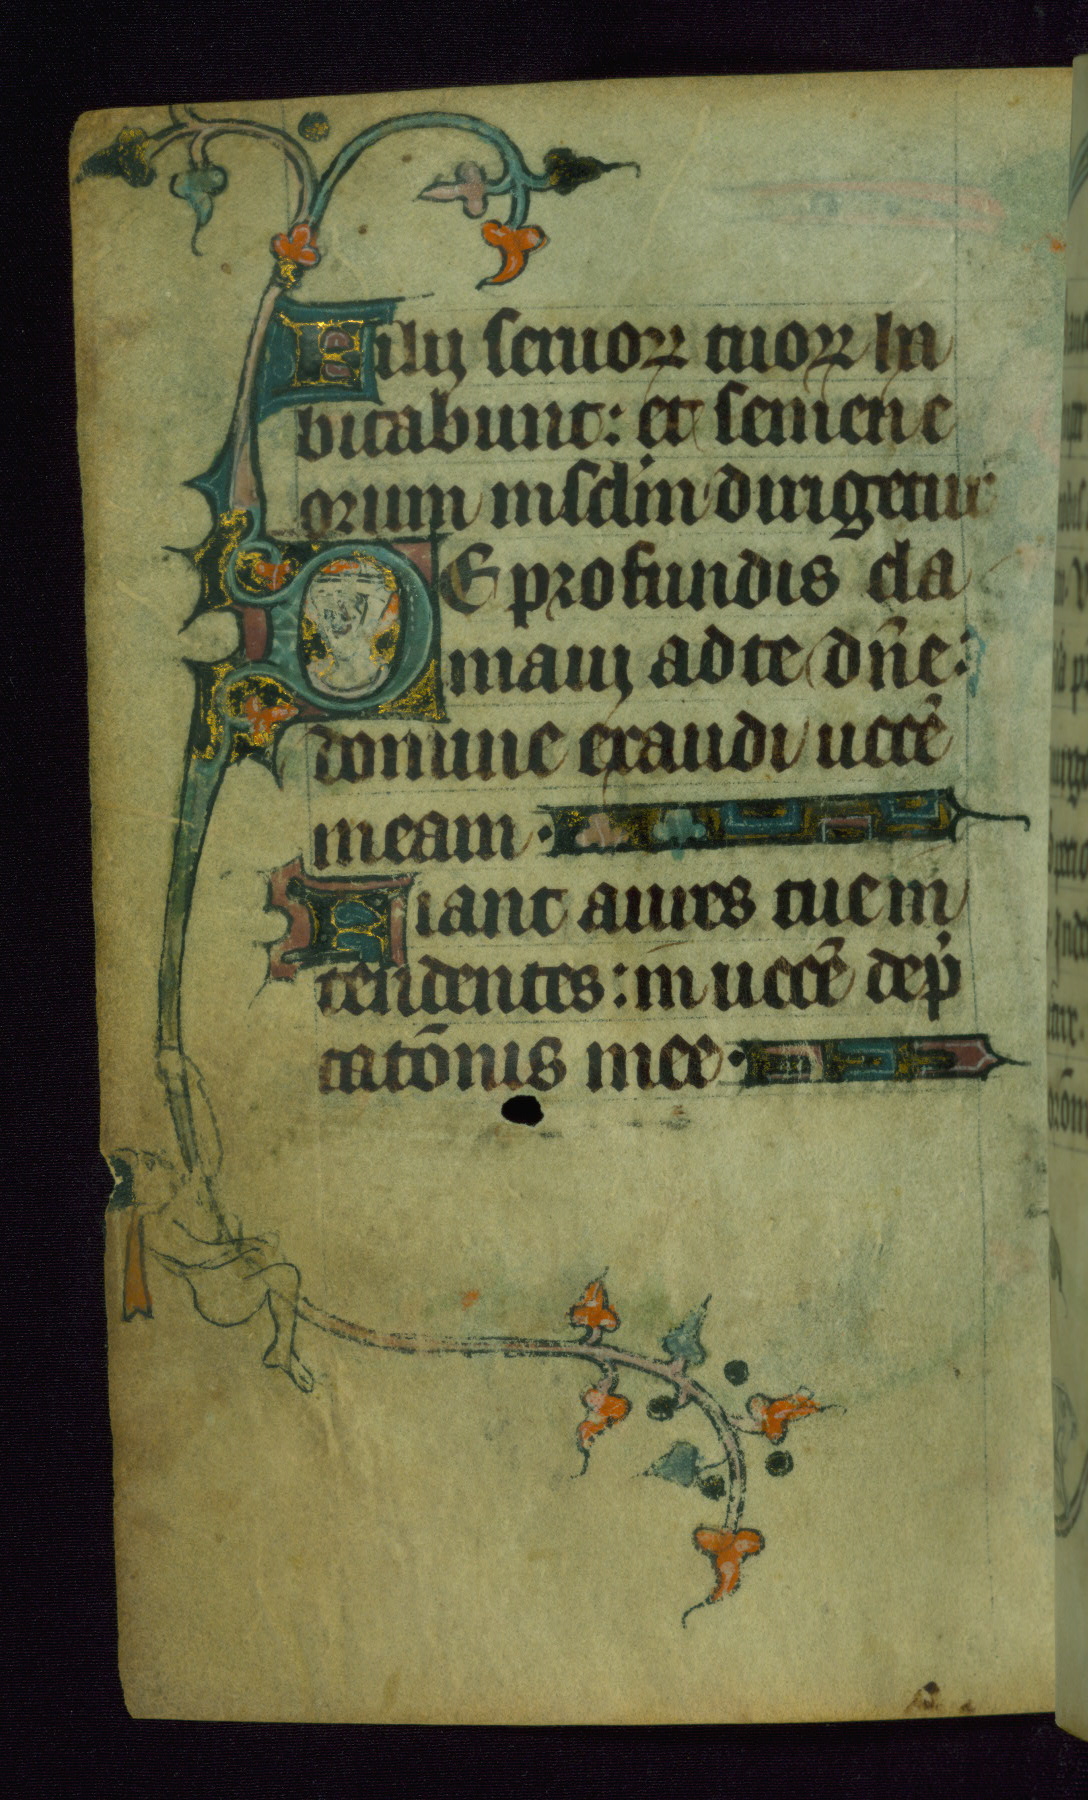 Filii seruoꝝ tuoꝝ ha
bitabunt: et semen e
orum in sclm dirigetur
DE profundis cla
maui ad te dn̄e:
domine exaudi uocē
meam ·
Fiant aures tue in
tendentes: in uocē dep̄
catōnis mee ·